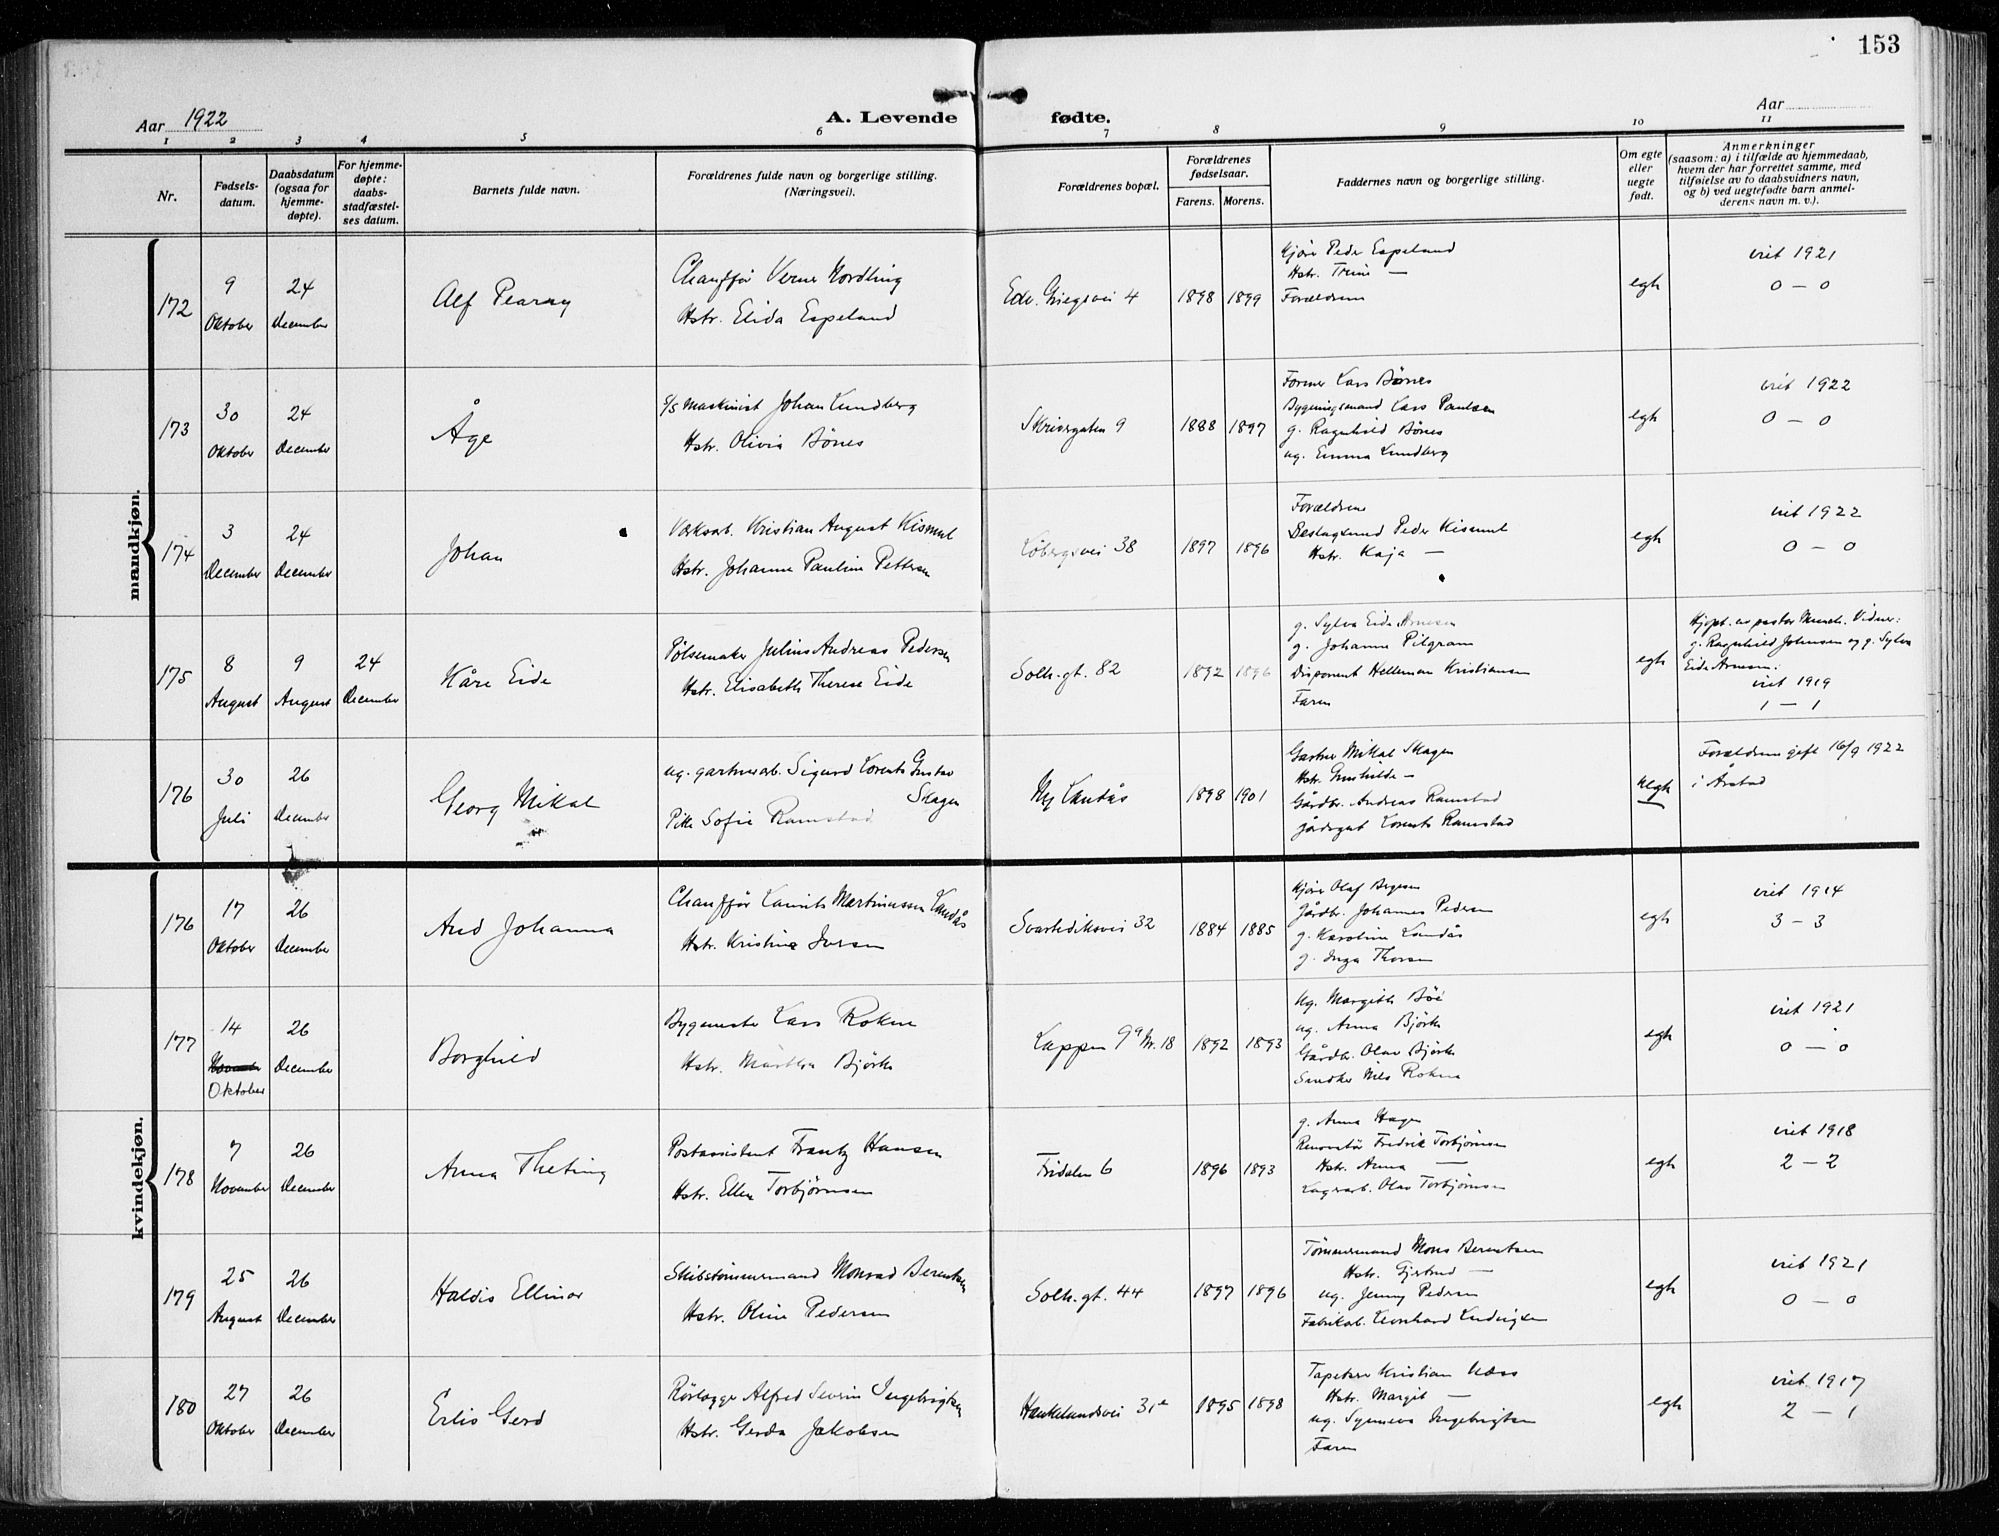 153
Aar 1922
A. Levende fødte.
Aar
1 2 3 4 5 6 7 8 9 10 11
Nr.
Fødsels-
datum.
Daabsdatum
(ogsaa for
hjemme-
døpte).
For hjemme-
døpte:
daabs-
stadfæstel-
ses datum.
Barnets fulde navn.
Forældrenes fulde navn og borgerlige stilling.
(Næringsvei).
Forældrenes bopæl.
Forældrenes
fødselsaar.
Farens. Morens.
Faddernes navn og borgerlige stilling.
Om egte
eller
uegte
født.
Anmerkninger
(saasom: a) i tilfælde av hjemmedaab,
hvem der har forrettet samme, med
tilføielse av to daabsvidners navn,
og b) ved uegtefødte barn anmel-
derens navn m. v.).
mandkjøn.
172
9
Oktober
24
December
Alf Pearay
Chauffør Verner Nordling
Hstr. Elida Espeland
Edv. Griegsvei 4
1898 1899
Kjører Peder Espeland
Hstr. Trine —
Forældrene
egte
viet 1921
0 — 0
173
30
Oktober
24
December
Åge
S/S Maskinist Johan Lundberg
Hstr. Olivia Bønes
Skivergaten 9
1888 1897
Former Lars Bønes
Bygningsmand Lars Paulsen
g. Ragnhild Bønes
ug. Emma Lundberg
egte
viet 1922
0 — 0
174
3
December
24
December
Johan
Værksarb. Kristian August Kismul
Hstr. Johanne Pauline Pettersen
Løbergsvei 38
1897 1896
Forældrene
Peder Kismul
Hstr. Kaja —
egte
viet 1922
0 — 0
175
8
August
9
August
24
December
Kåre Eide
Pølsemaker Julius Andreas Pedersen
Hstr. Elisabeth Therese Eide
Solh. gt. 82
1892 1896
g. Sylva Eide Arnesen
g. Johanne Pilgram
Disponent Helleman Kristiansen
Faren
egte
Hjdpt. av pastor Munch. Vidner:
g. Ragnhild Johnsen og g. Sylva
Eide Arnesen.
viet 1919
1 — 1
176
30
Juli
26
December
Georg Mikal
ug. gartnerarb. Sigurd Lorents Gustav
Skagen
Pike Sofie Ramstad
Ny Landås
1898 1901
Gartner Mikal Skagen
Hstr. Gunhilde —
Gårdbr. Andreas Ramstad
gårdsgut Lorents Ramstad
uegte
Forældrene gift 16/9 1922
i Årstad
kvindekjøn.
176
17
Oktober
26
December
Aud Johanna
Chauffør Laurits Martinussen Landås
Hstr. Kristine Iversen
Svartediksvei 32
1884 1885
Kjører Olaf Birgesen
Gårdbr. Johannes Pedersen
g. Karoline Landås
g. Inga Thorsen
egte
viet 1914
3 — 3
177
14
Oktober
26
December
Borghild
Bygmester Lars Rokne
Hstr. Martha Bjørke
Lappen 9a Nr. 18
1892 1893
ug. Margith Bøe
ug. Anna Bjørke
Gårdbr. Olav Bjørke
Snedker Nils Rokne
egte
viet 1921
0 — 0
178
7
November
26
December
Anna Theting
Postassistent Frantz Hansen
Hstr. Ellen Torbjørnsen
Fridalen 6
1896 1893
g. Anna Hagen
Renovatør Fredrik Torbjørnsen
Hstr. Anna —
Lagerarb. Olav Torbjørnsen
egte
viet 1918
2 — 2
179
25
August
26
December
Haldis Ellinor
Skibstømmermand Monrad Berentsen
Hstr. Oline Pedersen
Solh. gt. 44
1897 1896
Tømmermand Mons Berentsen
Hstr. Gjertrud —
ug. Jenny Pedersen
Fabrikarb. Leonhard Ludvigsen
egte
viet 1921
0 — 0
180
27
Oktober
26
December
Erlis Gerd
Rørlægger Alfred Severin Ingebrigtsen
Hstr. Gerda Jakobsen
Haukelandsvei 31e
1895 1898
Tapetserer Kristian Næss
Hstr. Margit —
ug. Synneva Ingebrigtsen
Faren
egte
viet 1917
2 — 1